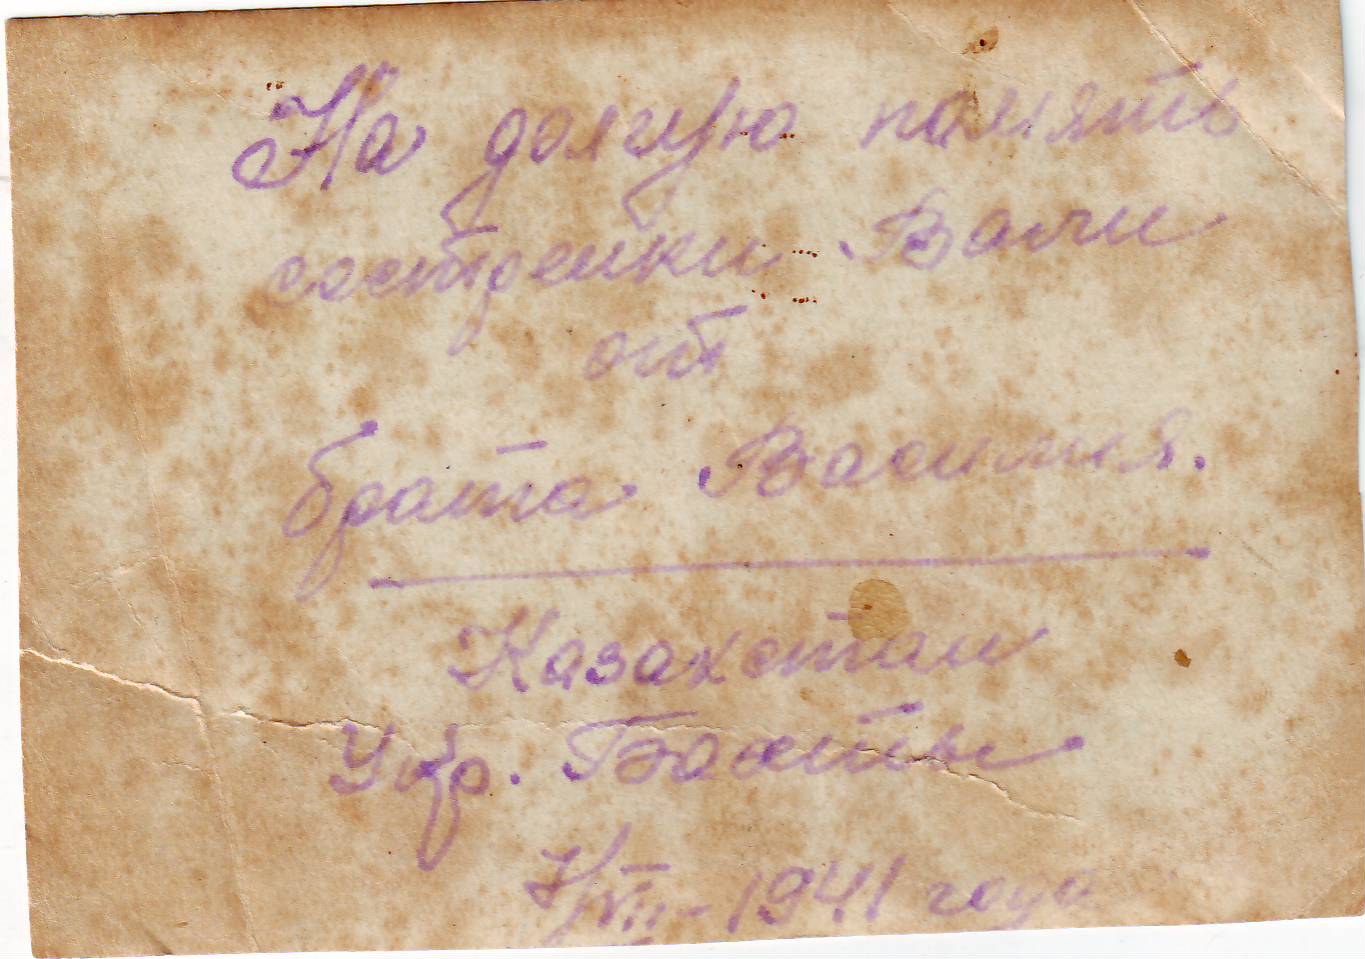 На долгую память
сестренки Вали
от
брата Василия.
Казахстан
Укр. Бахты
7/VII-1941 года